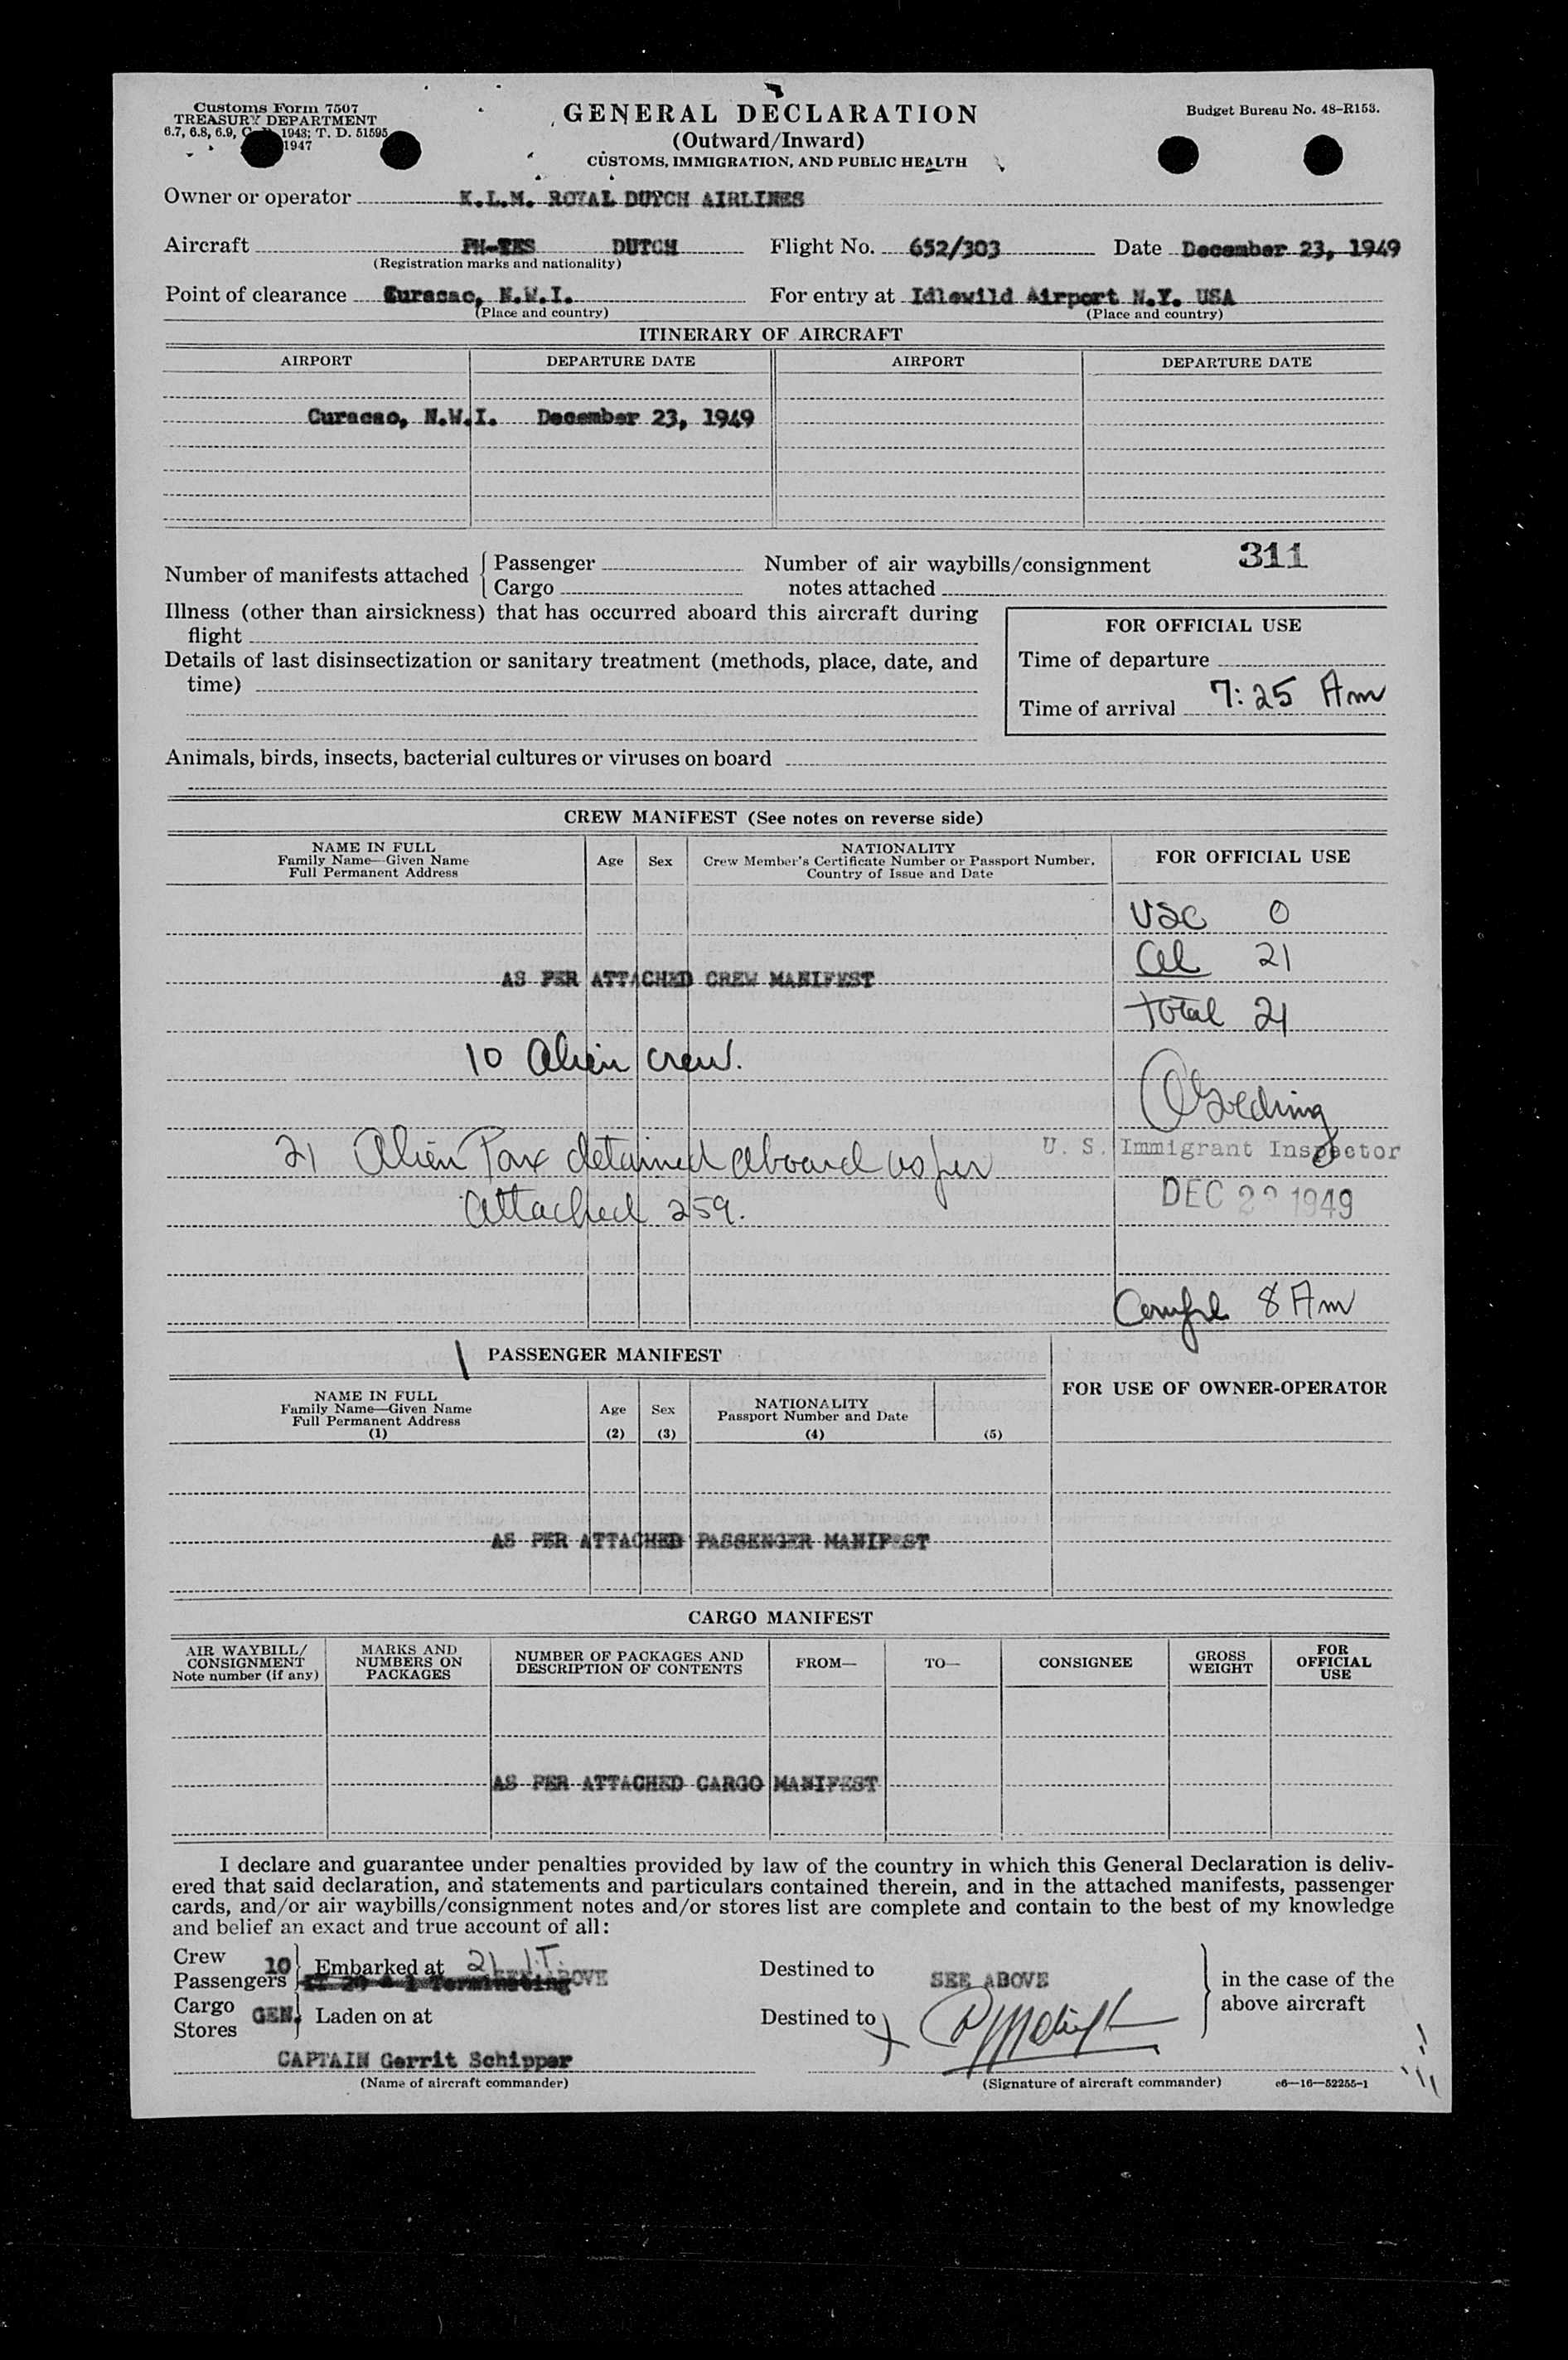 Customs Form 7507
TREASURY DEPARTMENT
6.7, 6.8, 6.9, 1943; T. D. 51595
1947
GENERAL DECLARATION
(Outward/Inward)
CUSTOMS, IMMIGRATION, AND PUBLIC HEALTH
Budget Bureau No. 48-R153.
Owner or operator K.L.M. ROYAL DUTCH AIRLINES
Aircraft DUTCH Flight No. 652/303 Date December 23, 1949
(Registration marks and nationality)
Point of clearance Curacao, N.W.I. For entry at Idlewild Airport N.Y. USA
(Place and country) (Place and country)
ITINERARY OF AIRCRAFT
AIRPORT DEPARTURE DATE AIRPORT DEPARTURE DATE
Curacao, N.W.I. December 23, 1949
311
Number of manifests attached { Passenger Number of air waybills/consignment
Cargo notes attached
Illness (other than airsickness) that has occurred aboard this aircraft during
flight
Details of last disinsectization or sanitary treatment (methods, place, date, and
time)
FOR OFFICIAL USE
Time of departure
Time of arrival 7:25 Am
Animals, birds, insects, bacterial cultures or viruses on board
CREW MANIFEST (See notes on reverse side)
NAME IN FULL
Family Name—Given Name
Full Permanent Address
Age Sex
NATIONALITY
Crew Member's Certificate Number or Passport Number,
Country of Issue and Date
FOR OFFICIAL USE
USC 0
al 21
AS PER ATTACHED CREW MANIFEST
total 21
10 Alien crew.
21 Alien Pax detained aboard as per
U. S. Immigrant Inspector
attached 259.
DEC 1949
8 Am
PASSENGER MANIFEST
NAME IN FULL
Family Name—Given Name
Full Permanent Address
(1)
Age
(2)
Sex
(3)
NATIONALITY
Passport Number and Date
(4)
(5)
FOR USE OF OWNER-OPERATOR
AS PER ATTACHED PASSENGER MANIFEST
CARGO MANIFEST
AIR WAYBILL/
CONSIGNMENT
Note number (if any)
MARKS AND
NUMBERS ON
PACKAGES
NUMBER OF PACKAGES AND
DESCRIPTION OF CONTENTS
FROM—
TO—
CONSIGNEE
GROSS
WEIGHT
FOR
OFFICIAL
USE
AS PER ATTACHED CARGO MANIFEST
I declare and guarantee under penalties provided by law of the country in which this General Declaration is deliv-
ered that said declaration, and statements and particulars contained therein, and in the attached manifests, passenger
cards, and/or air waybills/consignment notes and/or stores list are complete and contain to the best of my knowledge
and belief an exact and true account of all:
Crew 10 Embarked at 21 I.T. Destined to SEE ABOVE in the case of the
Passengers Terminating above aircraft
Cargo GEN. Laden on at Destined to
Stores
CAPTAIN Gerrit Schipper
(Name of aircraft commander) (Signature of aircraft commander) c6—16—52255-1